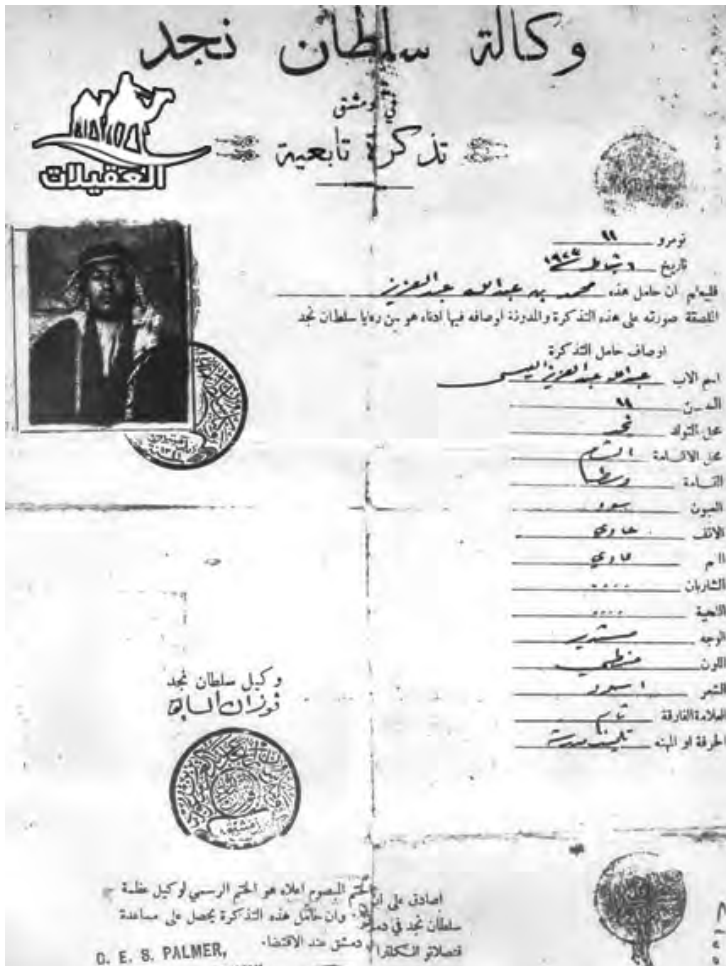 وكالة سلطان نجد
دمشق
تذكرة تابعية
العقيلات
نومرو ١١
تاريخ ٦ شباط ١٩٢٧
فليعلم ان حامل هذه محمد بن عبدالله عبدالعزيز
الملصقة صورته على هذه التذكرة والمدونة اوصافه فيها ادناه هو من رعايا سلطان نجد
اوصاف حامل التذكرة
اسم الاب عبدالله عبدالعزيز العيسى
السن ١١
محل التولد نجد
محل الاقامة الشام
القامة وسط
العيون سود
الانف عادي
الفم عادي
الشاربان ....
اللحية ....
الوجه مستدير
اللون حنطي
الشعر اسود
العلامة الفارقة تام
الحرفة او المهنه تلميذ مدرسة
وكيل سلطان نجد
فوزان السابق
اصادق على ان الختم المبصوم اعلاه هو الختم الرسمي لوكيل عظمة
سلطان نجد في دمشق وان حامل هذه التذكرة يحصل على مساعدة
قنصلاتو انكلترا دمشق عند الاقتضاء.
D. E. S. PALMER,